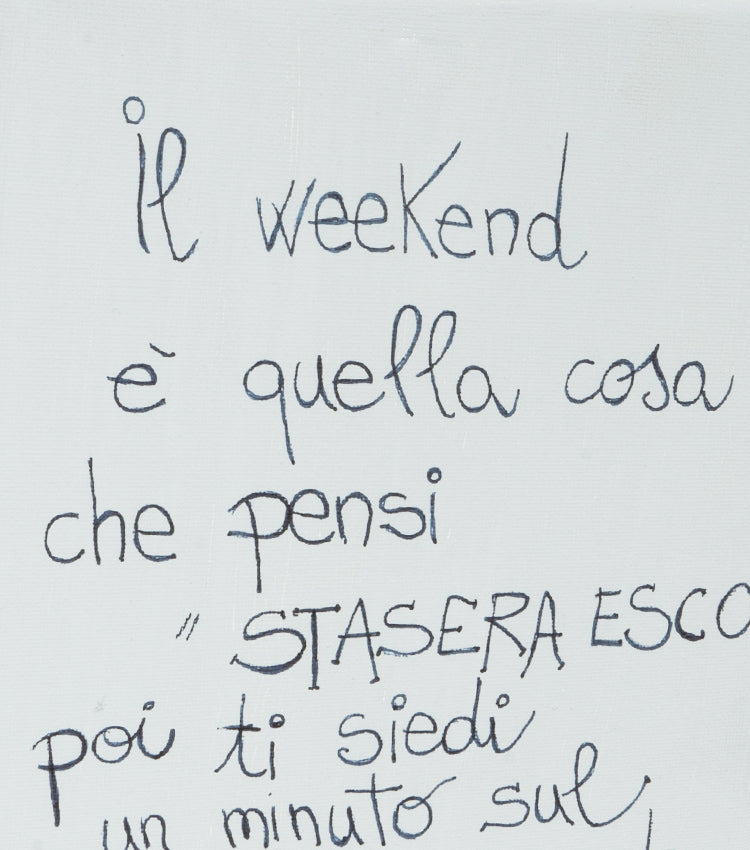 il weekend
è quella cosa
che pensi
"STASERA ESCO
poi ti siedi
un minuto sul